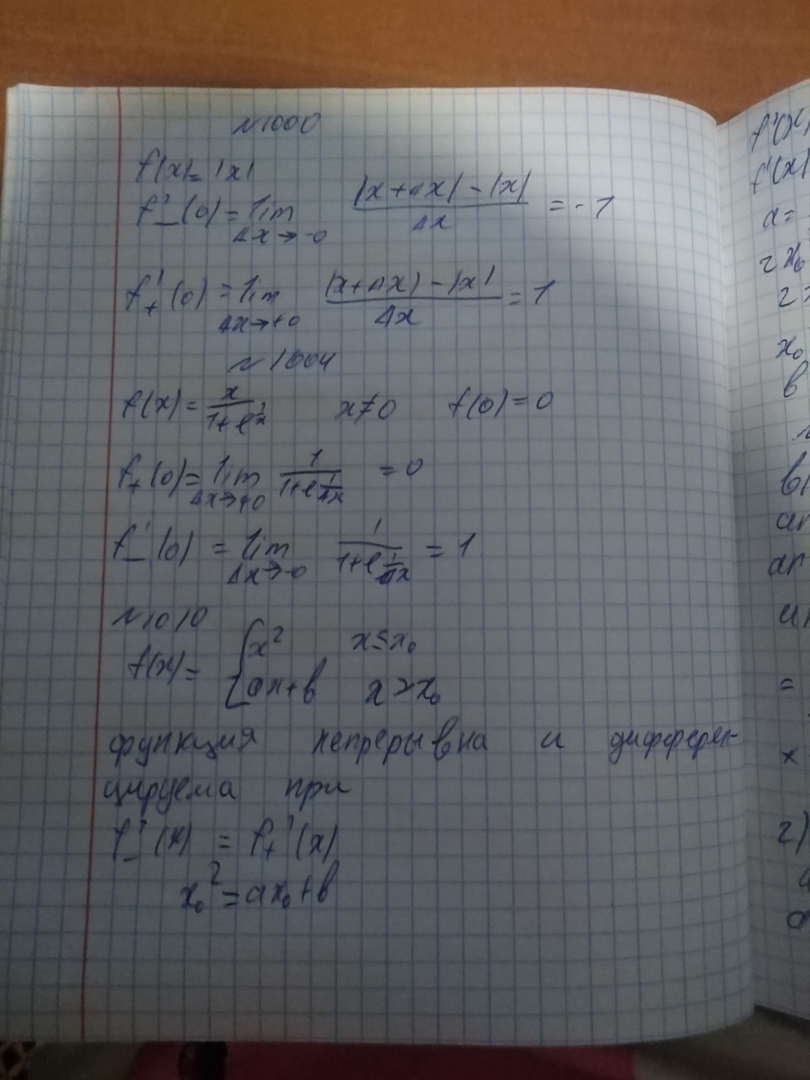 №1000
f(x)=|x|
f'₋(0)=lim Δx→-0 |x+Δx|-|x| / Δx = -1
f'₊(0)=lim Δx→+0 |x+Δx|-|x| / Δx = 1
№1004
f(x)= x / 1+e^(1/x) x≠0 f(0)=0
f₊(0)=lim Δx→+0 1 / 1+e^(1/Δx) =0
f'₋(0) = lim Δx→-0 1 / 1+e^(1/Δx) = 1
№1010
f(x)= { x² x≤x₀
ax+b x>x₀
функция непрерывна и дифферен-
цируема при
f'₋(x) = f₊'(x)
x₀²=ax₀+b
f'(x
f'(x)
a=
2x₀
2
x₀
b
=
x
2)